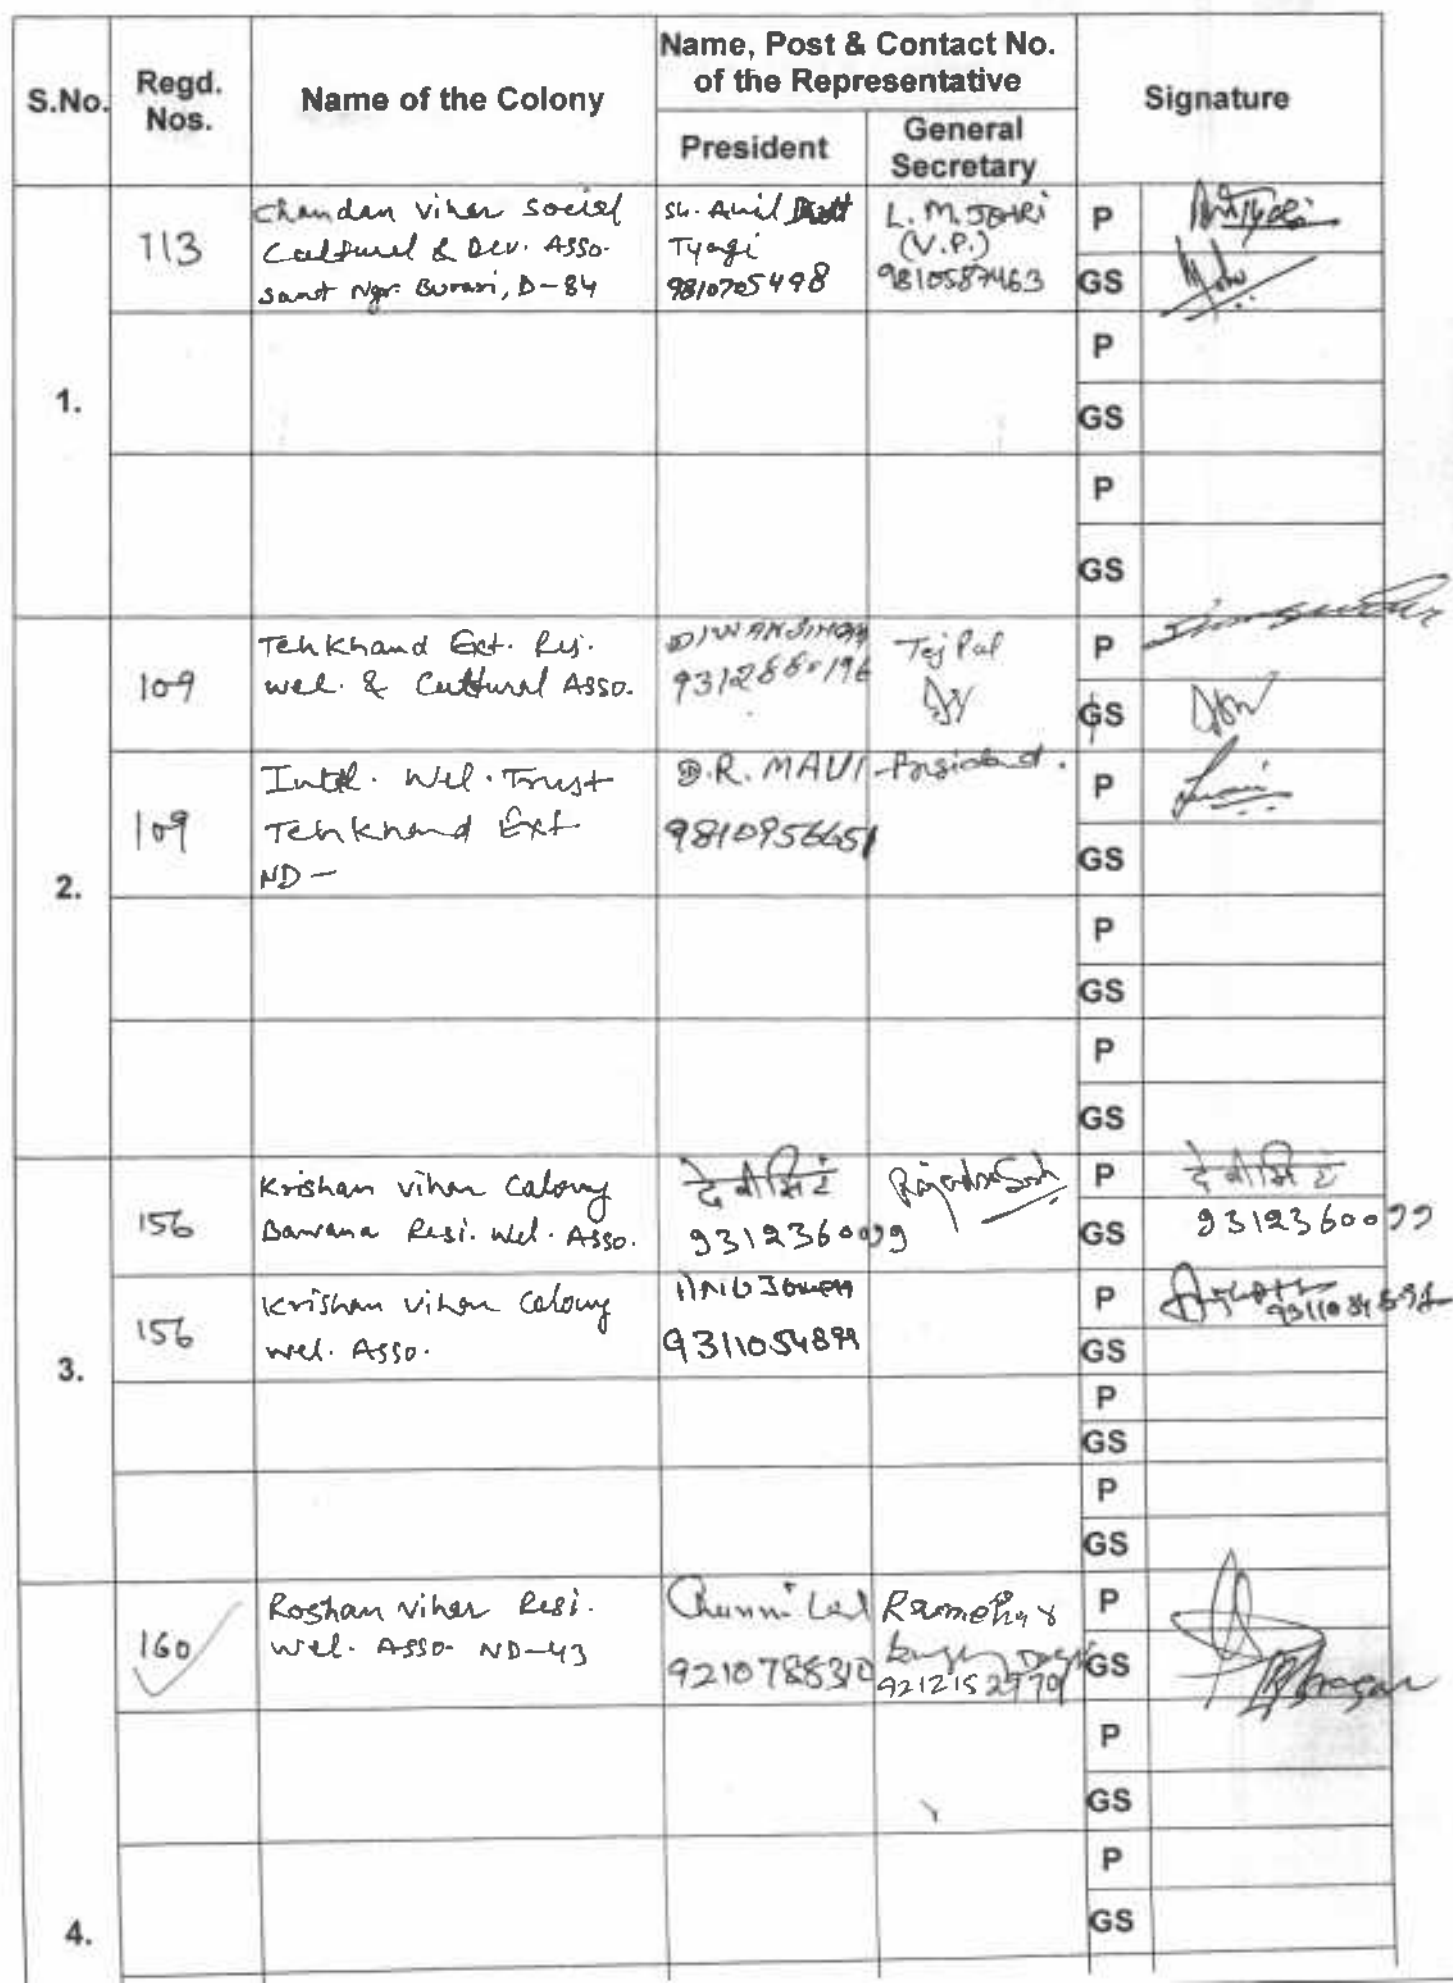 S.No.
Regd.
Nos.
Name of the Colony
Name, Post & Contact No.
of the Representative
President
General
Secretary
Signature
1.
113
Chandan Viher Social
Cultural & Dev. Asso.
Sant Ngr. Burari, D-84
Sh. Anil Dutt
Tyagi
9810705498
L. M. JOHRI
(V.P.)
9810587463
P
GS
P
GS
P
GS
2.
109
Tehkhand Ext. Res.
Wel. & Cultural Asso.
DIWAN SINGH
9312880196
Tej Pal
P
GS
109
Intel. Wel. Trust
Tehkhand Ext
ND -
D.R. MAVI - President.
9810956651
P
GS
P
GS
P
GS
3.
156
Krishan Vihar Calony
Bawana Resi. Wel. Asso.
देवी सिंह
9312360099
Rajendra Singh
P
GS
देवी सिंह
9312360099
156
Krishan Vihar Calony
Wel. Asso.
9311054899
P
GS
P
GS
P
GS
4.
160
Roshan Viher Resi.
Wel. Asso. ND-43
Chunni Lal
9210788310
9212152770
P
GS
P
GS
P
GS